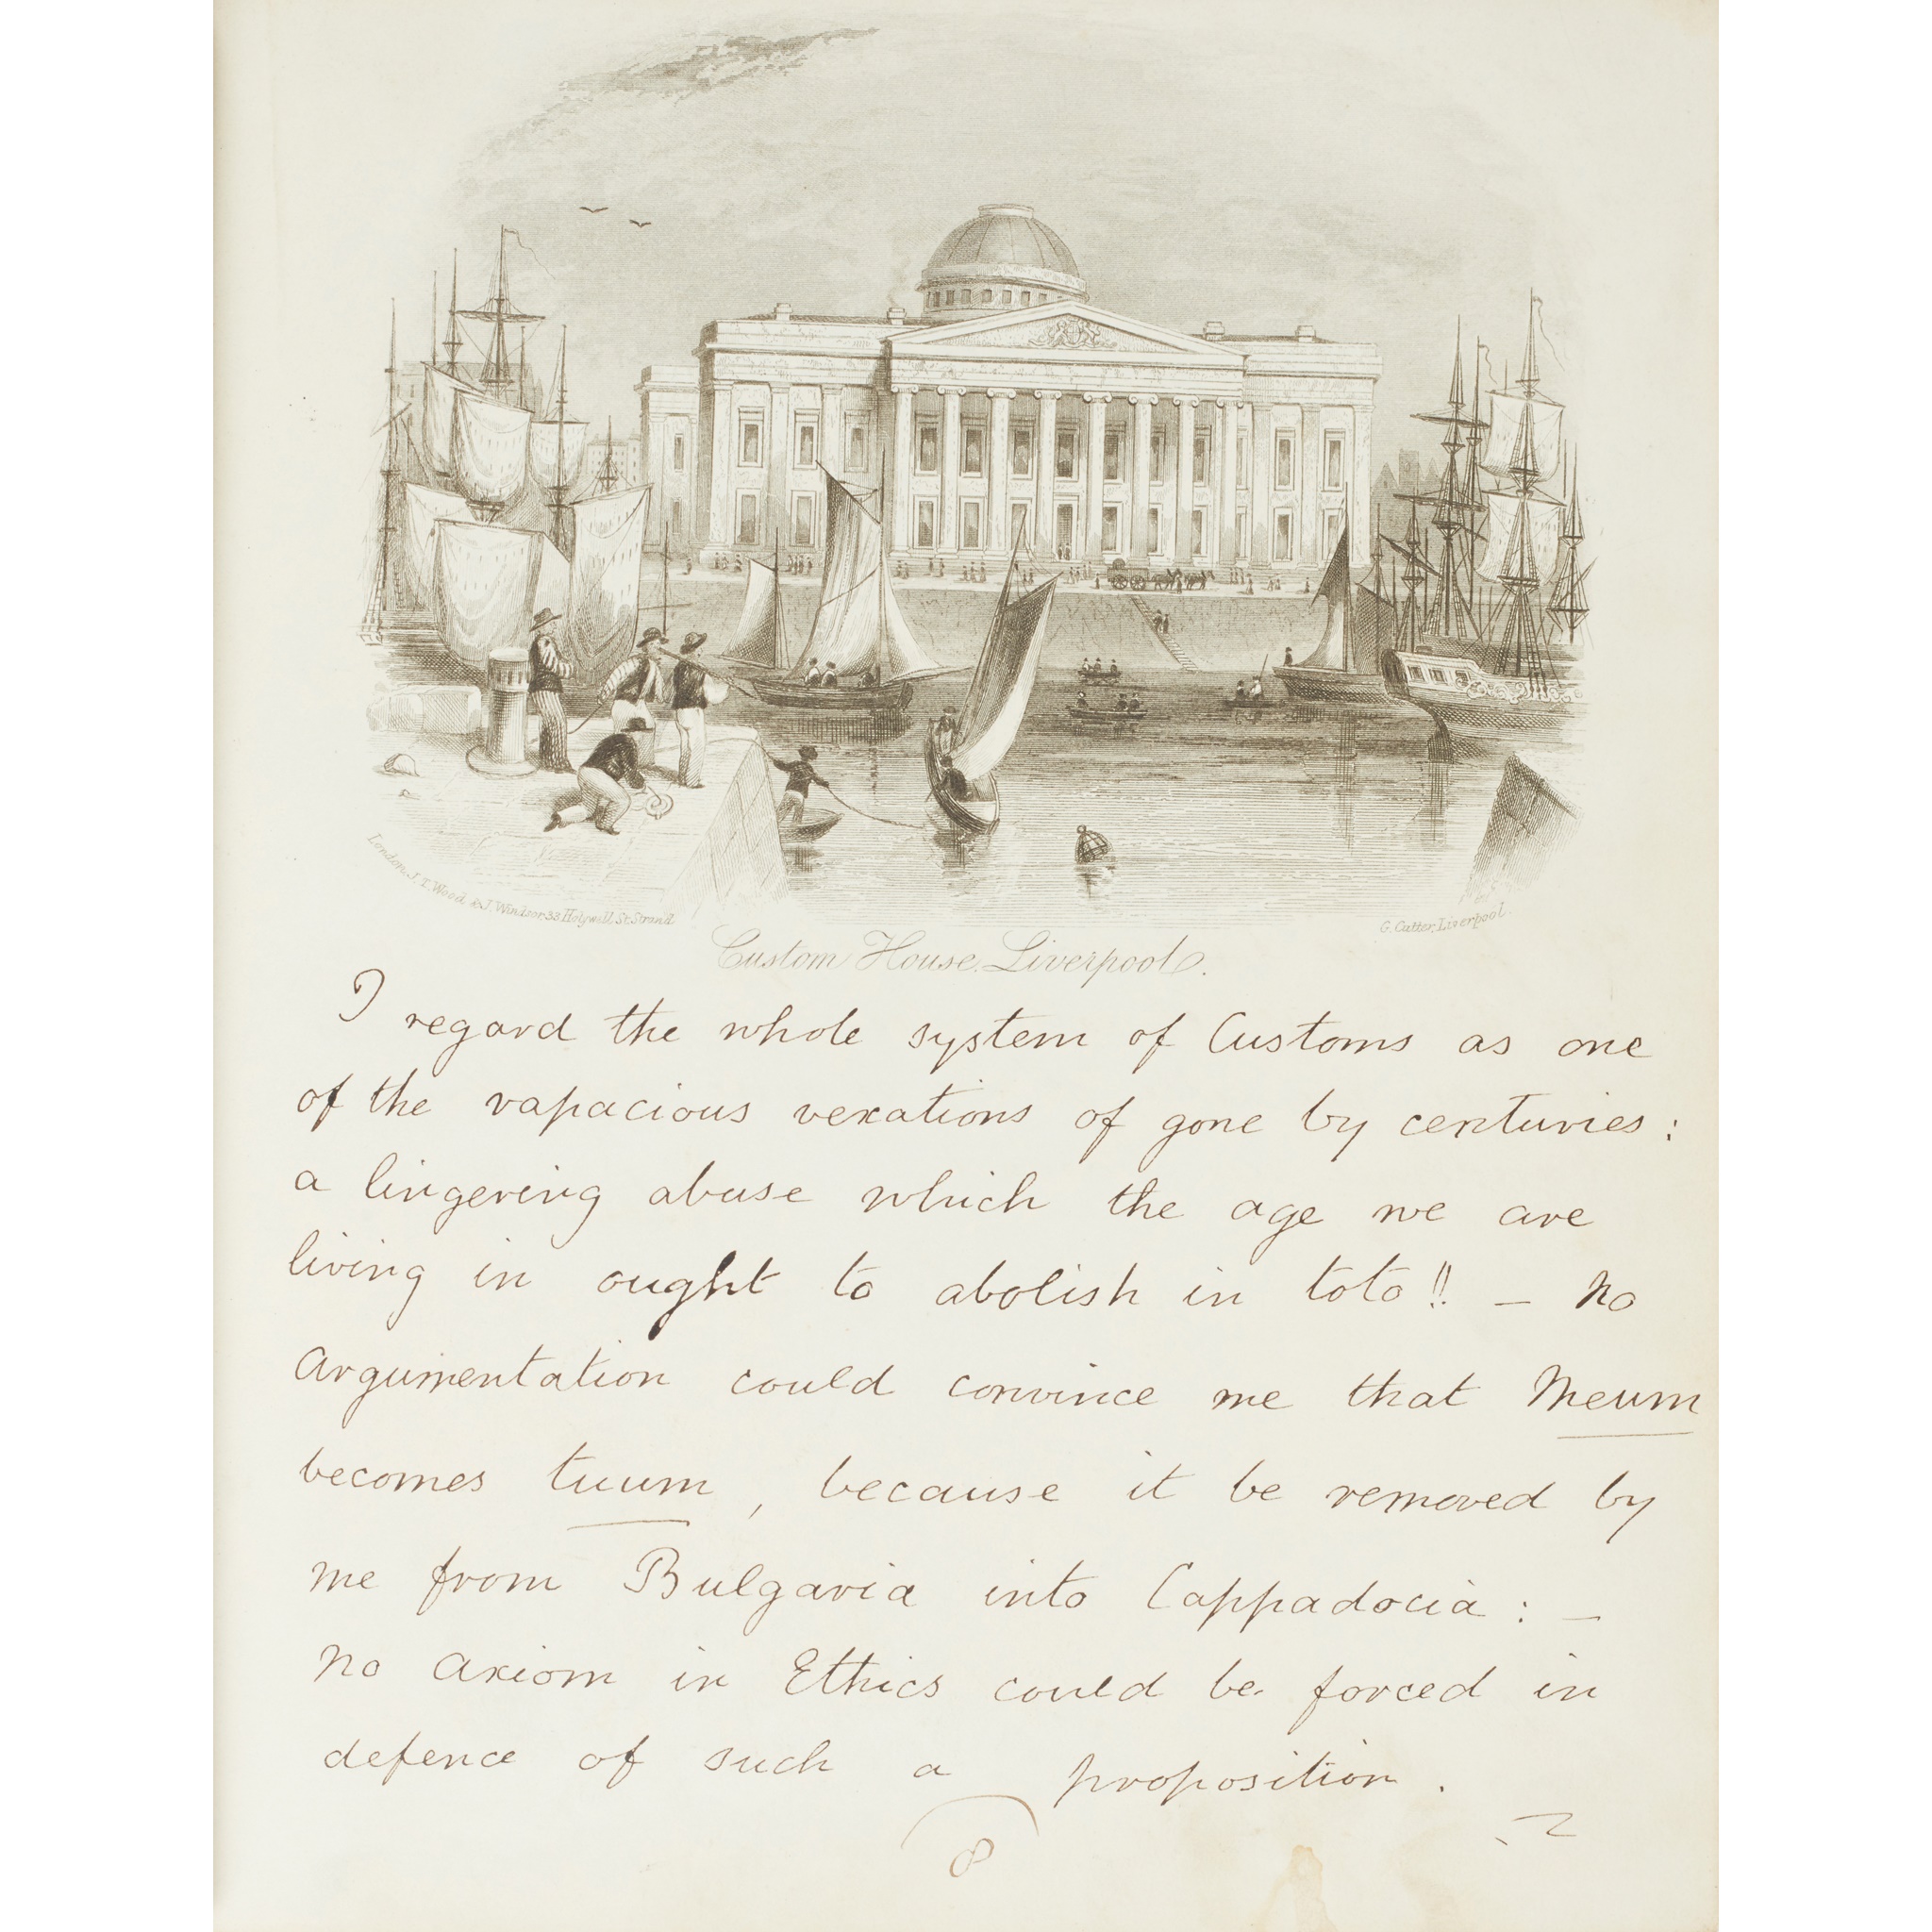 London, J. T. Wood, & J. Windsor 33 Holywell St. Strand
G. Cutter, Liverpool.
Custom House, Liverpool.
I regard the whole system of Customs as one
of the rapacious vexations of gone by centuries:
a lingering abuse which the age we are
living in ought to abolish in toto!! — No
Argumentation could convince me that Meum
becomes tuum, because it be removed by
me from Bulgaria into Cappadocia: —
No Axiom in Ethics could be forced in
defence of such a proposition.
8